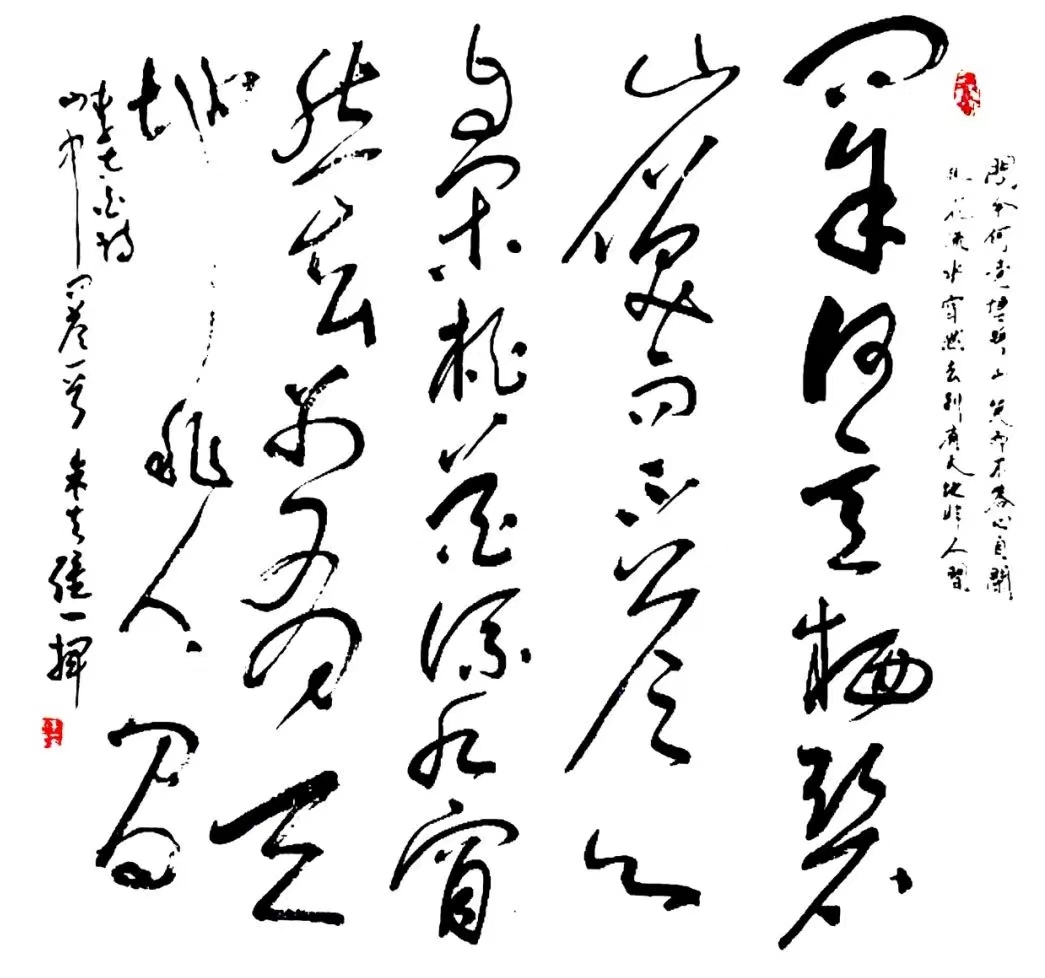 問余何意栖碧山笑而不答心自閑
桃花流水窅然去别有天地非人間
问年何意栖碧
山笑而不答心
自闲桃花流水窅
然去别有天
地非人间
李太白诗
山中问答一首 一挥